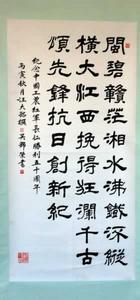 閩碧贛茳湘水沸鐵流縱
橫大江西挽得狂瀾千古
頌先鋒抗日創新紀
紀念中國工農紅軍長征勝利五十周年
丙寅秋月汪大銘撰 榮書